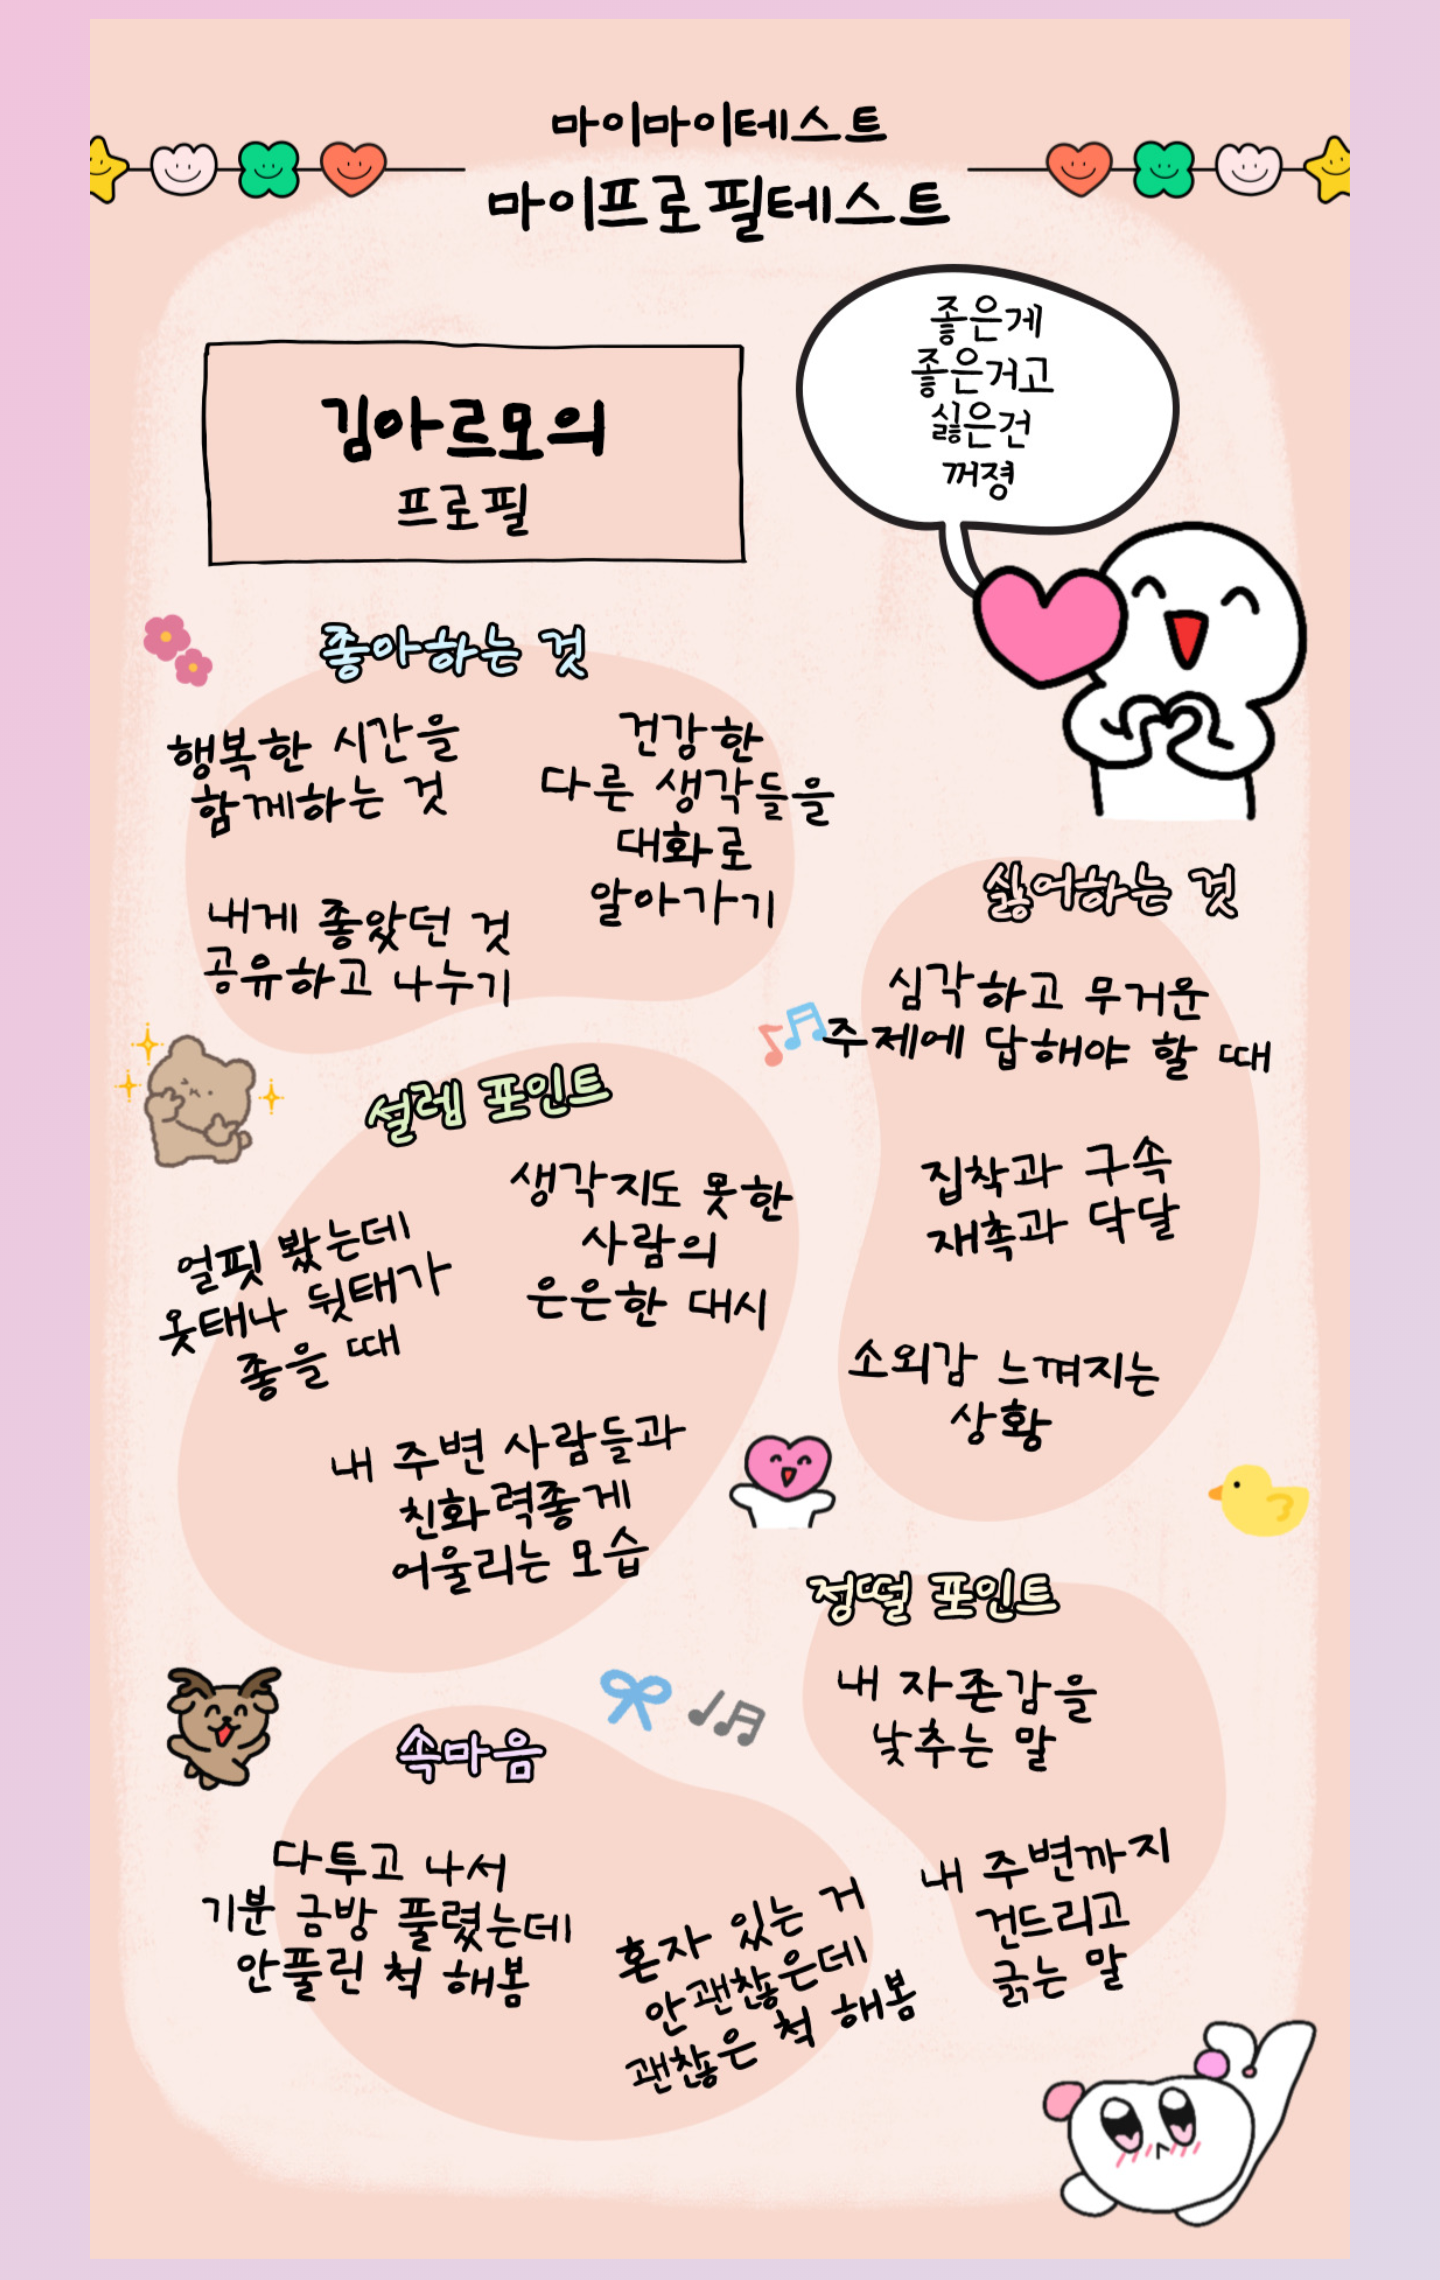 마이마이테스트
마이프로필테스트
좋은게
좋은거고
싫은건
꺼졍
김아르모의
프로필
좋아하는 것
행복한 시간을
함께하는 것
건강한
다른 생각들을
대화로
알아가기
내게 좋았던 것
공유하고 나누기
싫어하는 것
심각하고 무거운
주제에 답해야 할 때
집착과 구속
재촉과 닥달
소외감 느껴지는
상황
설렘 포인트
생각지도 못한
사람의
은은한 대시
얼핏 봤는데
옷태나 뒷태가
좋을 때
내 주변 사람들과
친화력좋게
어울리는 모습
정떨 포인트
내 자존감을
낮추는 말
내 주변까지
건드리고
긁는 말
속마음
다투고 나서
기분 금방 풀렸는데
안풀린 척 해봄
혼자 있는 거
안괜찮은데
괜찮은 척 해봄